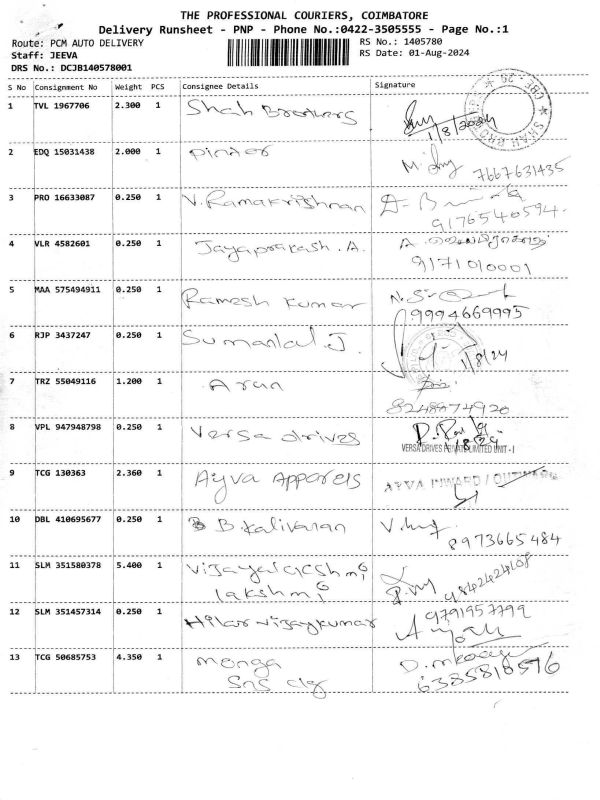 THE PROFESSIONAL COURIERS, COIMBATORE
Delivery Runsheet - PNP - Phone No.:0422-3505555 - Page No.:1
Route: PCM AUTO DELIVERY
RS No.: 1405780
Staff: JEEVA
RS Date: 01-Aug-2024
DRS No.: DCJB140578001
S No Consignment No Weight PCS Consignee Details Signature
1 TVL 1967706 2.300 1 Shah Brothers
1/8/2024
2 EDQ 15031438 2.000 1
7667631435
3 PRO 16633087 0.250 1 V. Ramakrishnan
9176540594
4 VLR 4582601 0.250 1 Jayaprakash . A.
9171010001
5 MAA 575494911 0.250 1 Ramesh Kumar
9994669995
6 RJP 3437247 0.250 1 Sumanlal J.
1/8/24
7 TRZ 55049116 1.200 1 Arun
8248974920
8 VPL 947948798 0.250 1 Versa drives
1/8/24
VERSA DRIVES PRIVATE LIMITED UNIT - I
9 TCG 130363 2.360 1 Ayva Apparels
AYVA INWARD /
10 DBL 410695677 0.250 1 B. Kalivanan
8973665484
11 SLM 351580378 5.400 1
lakshmi
9842424168
12 SLM 351457314 0.250 1 Hilar Vijaykumar
9791957799
13 TCG 50685753 4.350 1 Monga
SNS clg
6385818516